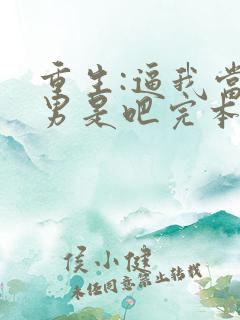 重生:逼我当
男某吧完本
侯小健
未经同意禁止转载